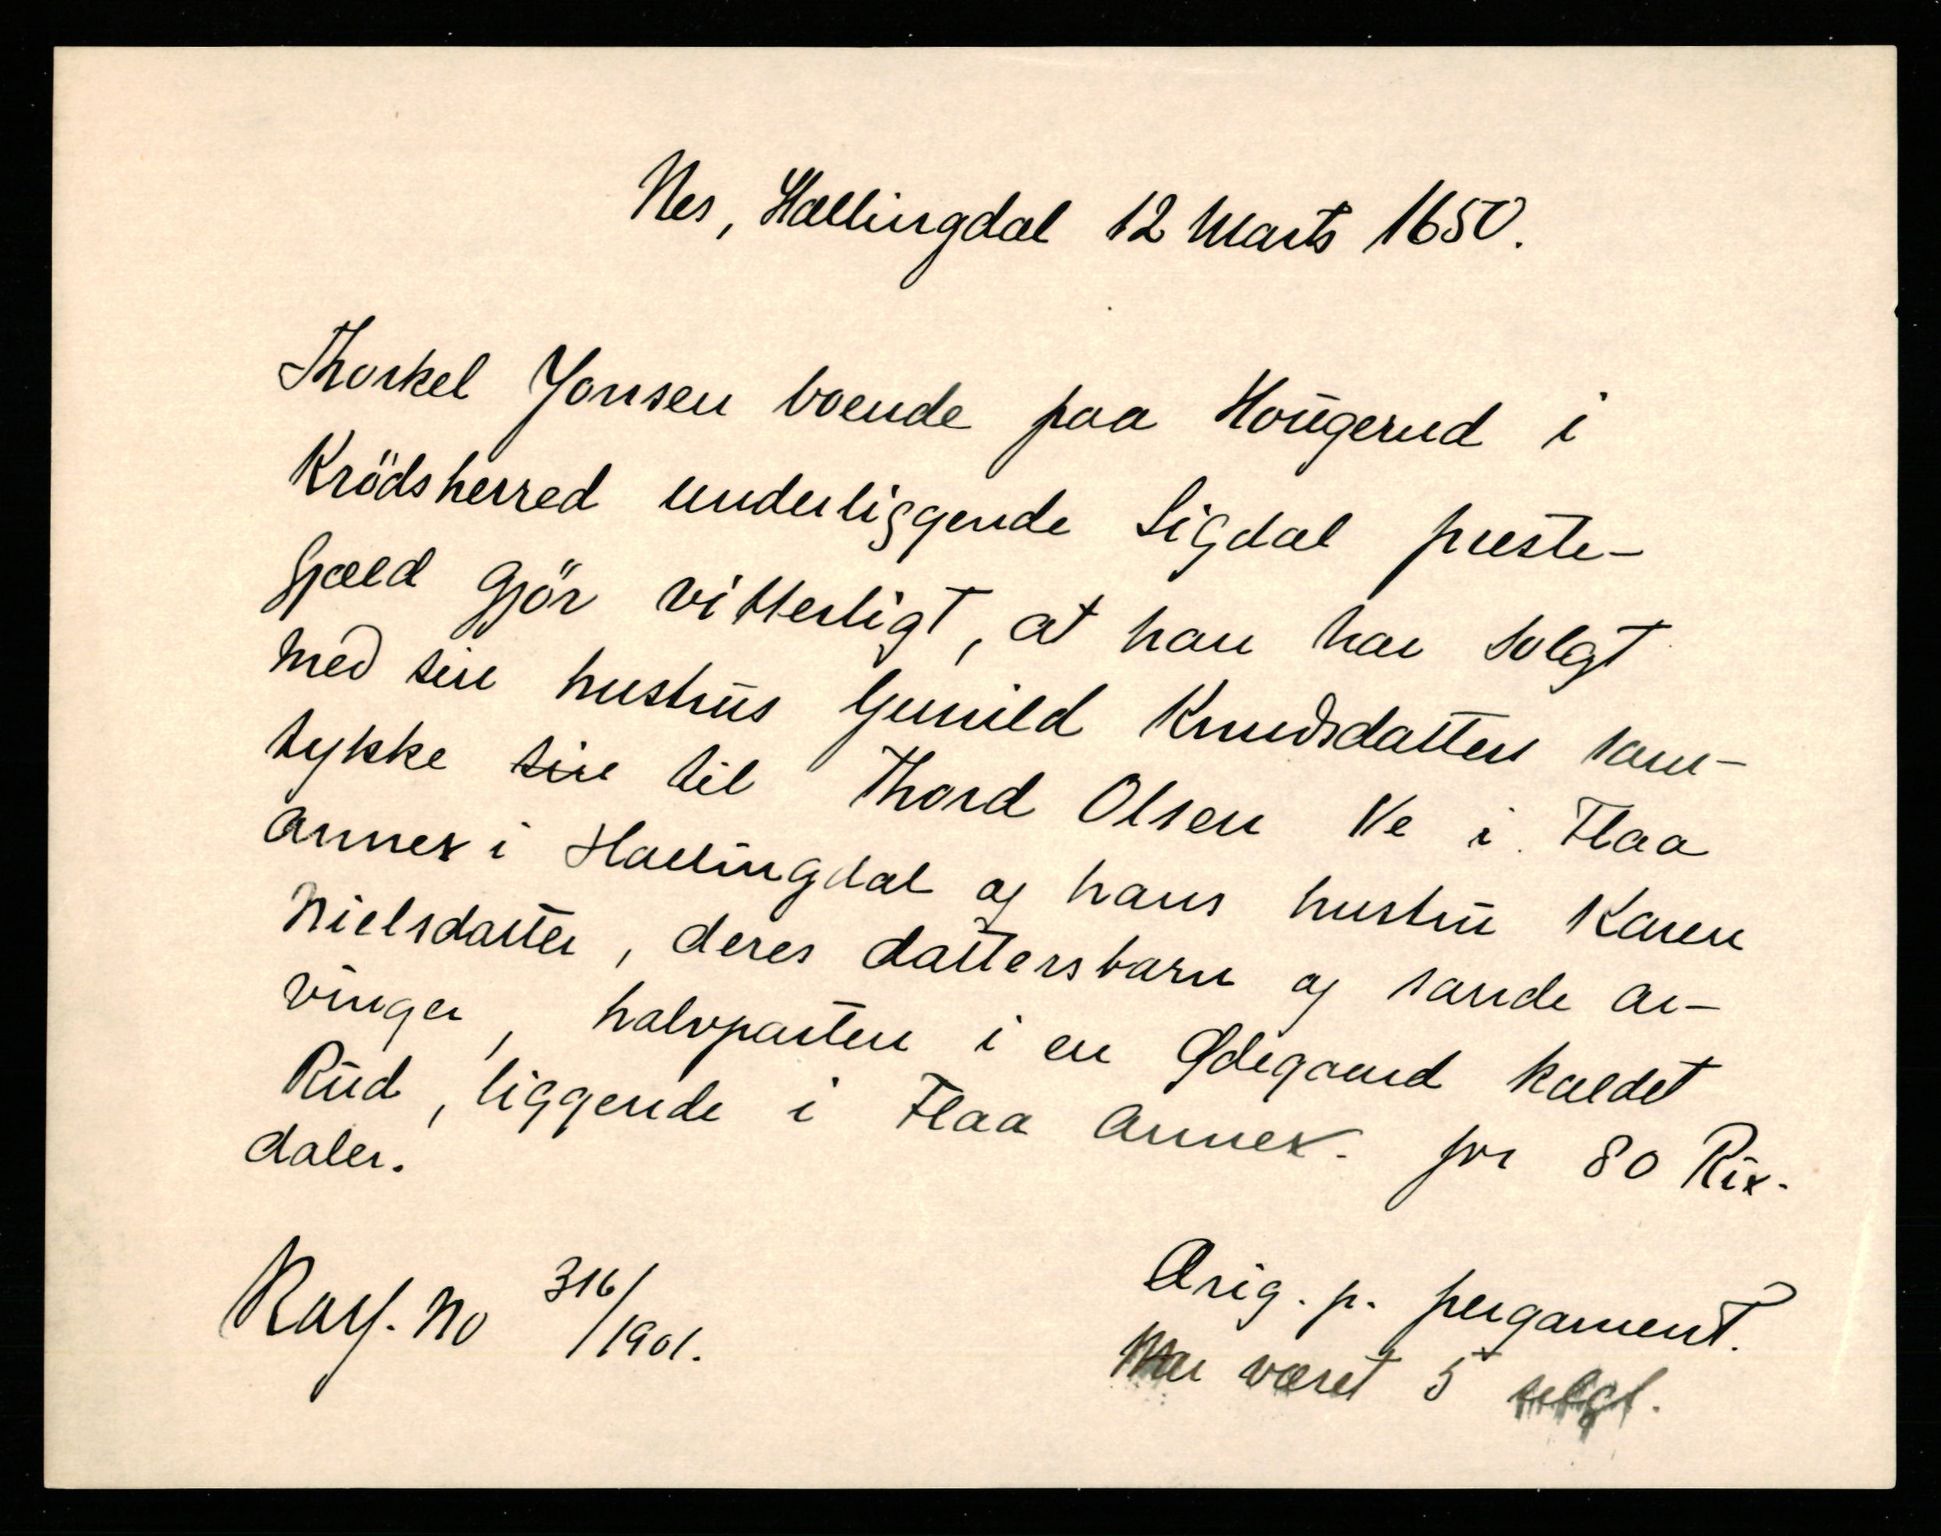 Nes, Hallingdal 12 Marts 1650.
Thorkel Jonsen boende paa Hoŭgerud i
Krödsherred underliggende Sigdal præste-
gjæld gjör vitterligt, at han har solgt
med sin hustrŭs Gunild Knudsdatters sam-
tykke ~~sin~~ til Thord Olsen Ve i Flaa
annex i Hallingdal og hans hustrŭ Karen
Nielsdatter, deres dattersbarn og sande ar-
vinger, halvparten i en Ødegaard kaldet
Rŭd, liggende i Flaa annex. for 80 Rix-
daler.
Orig. p. pergament.
Kasf. No 316/1901.
Har været 5 segl.